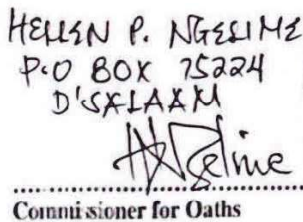 HELLEN P. NGELIME
P.O BOX 75224
D'SALAAM
Commissioner for Oaths